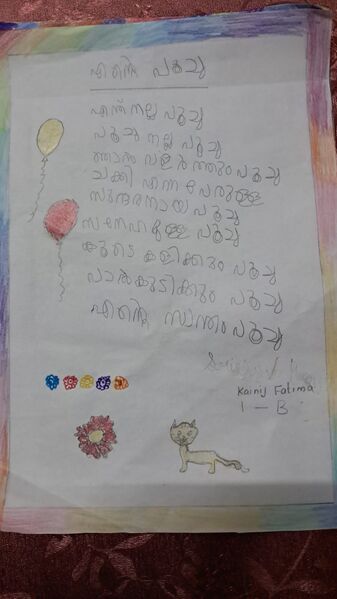 എന്റെ പൂച്ച
എന്ത് നല്ല പൂച്ച
പൂച്ച നല്ല പൂച്ച
ഞാൻ വളർത്തും പൂച്ച
ചക്കി എന്ന പേരുള്ള
സുന്ദരനായ പൂച്ച
സ്നേഹമുള്ള പൂച്ച
കൂടെ കളിക്കും പൂച്ച
പാൽകുടിക്കും പൂച്ച
എന്റെ സ്വന്തം പൂച്ച
Kainij Fatima
1 - B